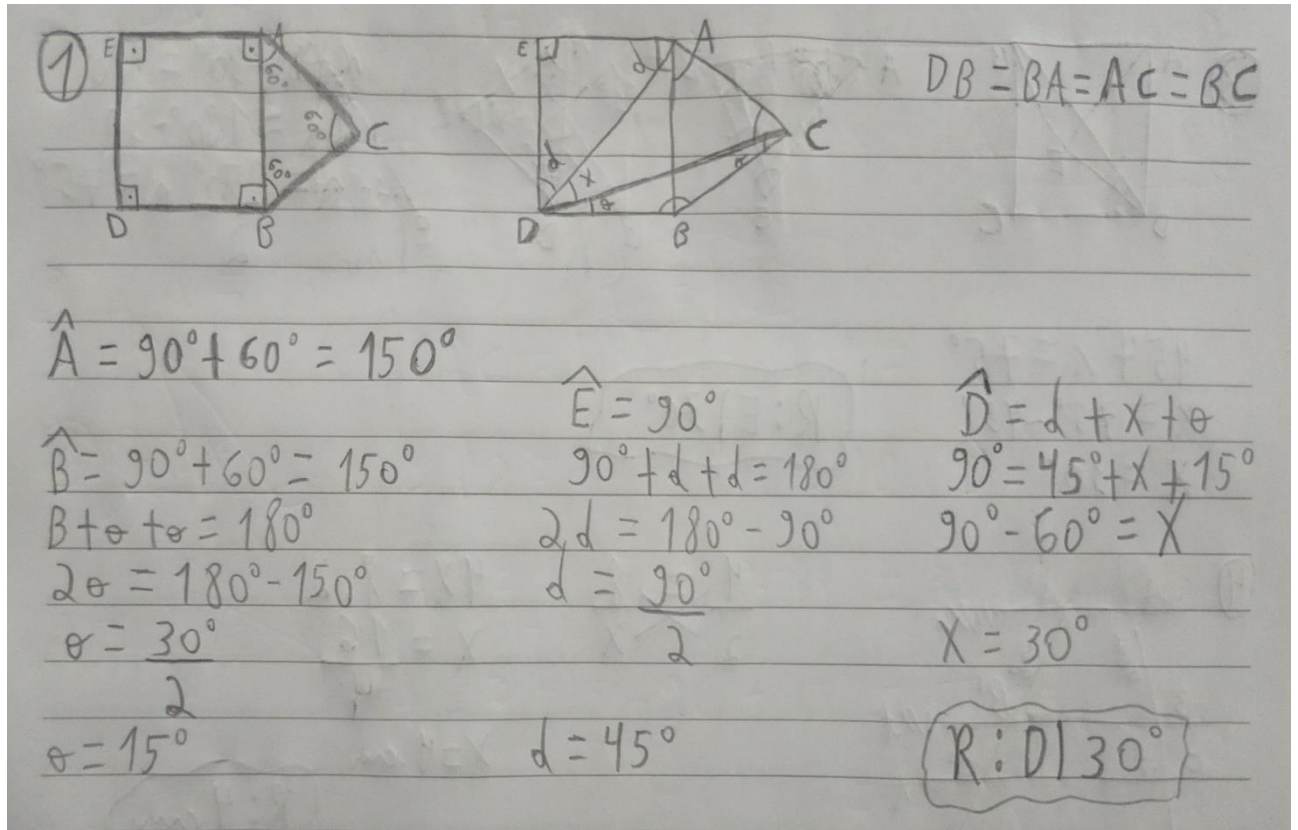 1
E A
60°
60° C
60°
D B
E d A
C
d x θ
θ
D B
DB = BA = AC = BC
Â = 90° + 60° = 150°
B̂ = 90° + 60° = 150°
B + θ + θ = 180°
2θ = 180° - 150°
θ = 30°
2
θ = 15°
Ê = 90°
90° + d + d = 180°
2d = 180° - 90°
d = 90°
2
d = 45°
D̂ = d + x + θ
90° = 45° + x + 15°
90° - 60° = X
X = 30°
R: D| 30°